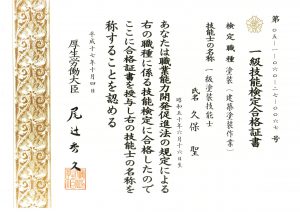 一級技能検定合格証書
検定職種 塗装(建築塗装作業)
技能士の名称 一級塗装技能士
氏名 久保 聖
昭和五十年六月十六日生
あなたは職業能力開発促進法の規定による
右の職種に係る技能検定に合格したので
ここに合格証書を授与し右の技能士の名称を
称することを認める
平成十七年十月四日
厚生労働大臣 尾辻秀久